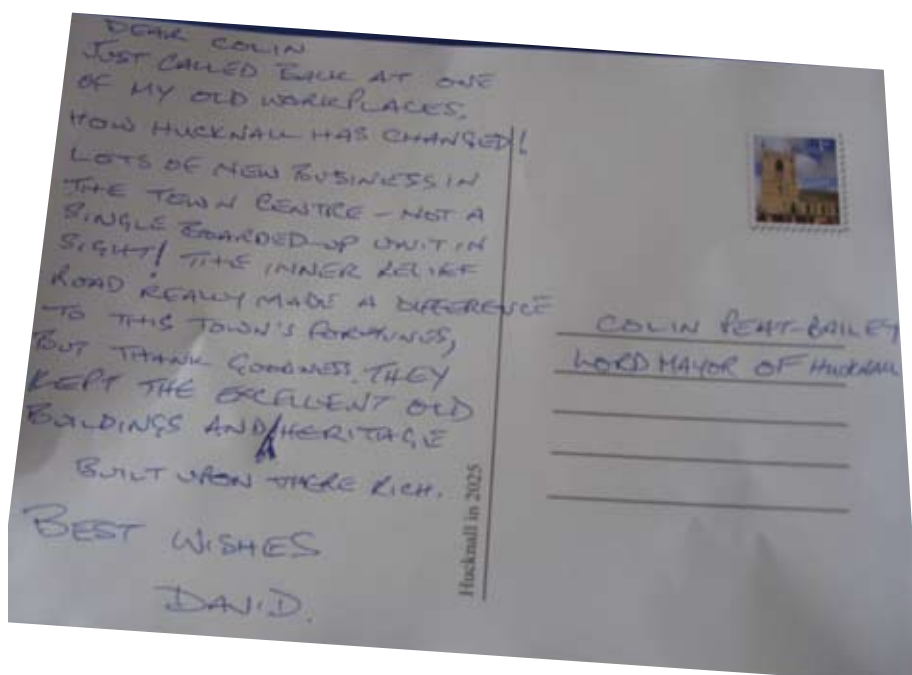 DEAR COLIN
JUST CALLED BACK AT ONE
OF MY OLD WORKPLACES.
HOW HUCKNALL HAS CHANGED!
LOTS OF NEW BUSINESS IN
THE TOWN CENTRE - NOT A
SINGLE BOARDED-UP UNIT IN
SIGHT! THE INNER RELIEF
ROAD REALLY MADE A DIFFERENCE
TO THIS TOWN'S FORTUNES,
BUT THANK GOODNESS. THEY
KEPT THE EXCELLENT OLD
BUILDINGS AND HERITAGE
BUILT UPON THERE RICH.
BEST WISHES
DAVID.
Hucknall in 2025
COLIN PEAT-BAILEY
LORD MAYOR OF HUCKNALL